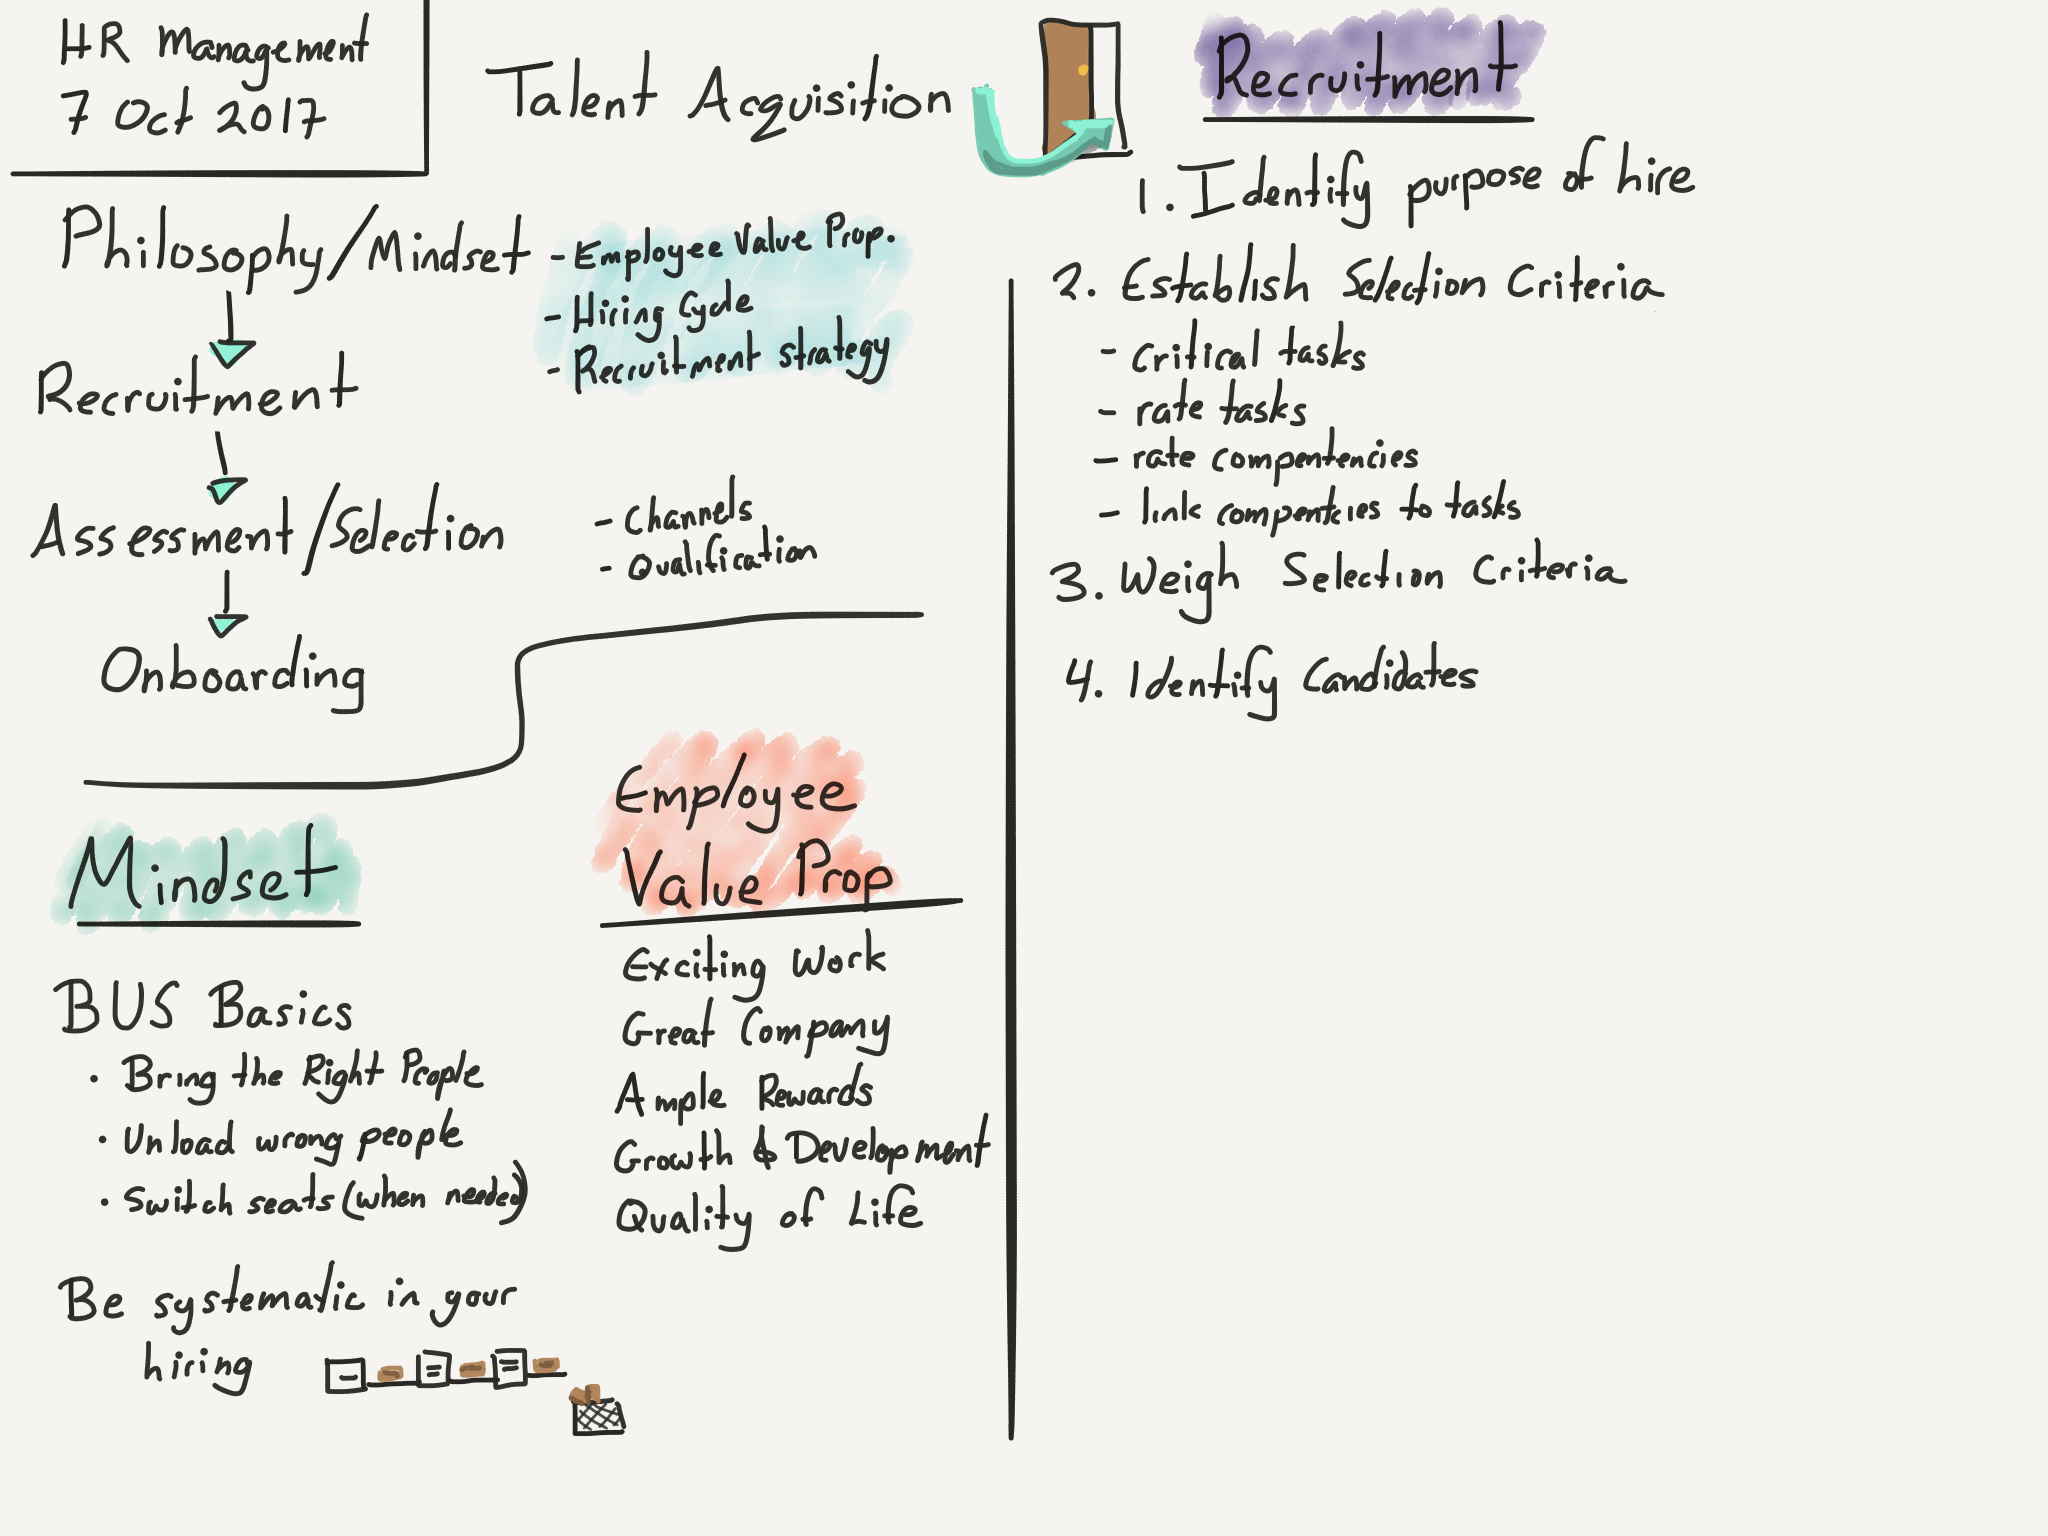 HR Management
7 Oct 2017
Talent Acquisition
Philosophy/Mindset
- Employee Value Prop.
- Hiring Cycle
- Recruitment strategy
Recruitment
Assessment/Selection
- Channels
- Qualification
Onboarding
Mindset
BUS Basics
• Bring the Right People
• Unload wrong people
• Switch seats (when needed)
Be systematic in your
hiring
Employee
Value Prop
Exciting Work
Great Company
Ample Rewards
Growth & Development
Quality of Life
Recruitment
1. Identify purpose of hire
2. Establish Selection Criteria
- critical tasks
- rate tasks
- rate compentencies
- link compentcies to tasks
3. Weigh Selection Criteria
4. Identify Candidates